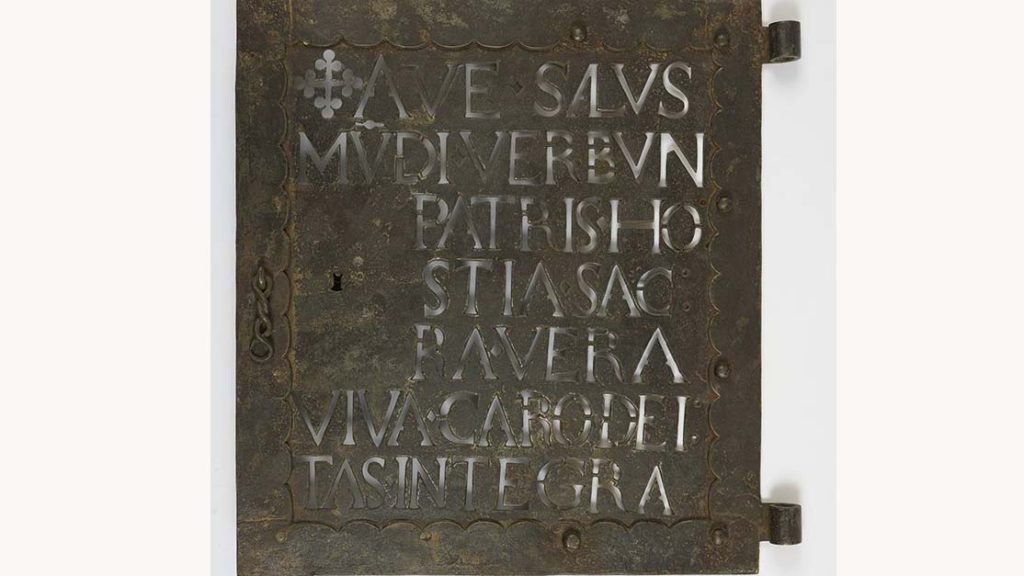 ✤ AVE · SALVS
MV̄DI · VERBVN
PATRIS HO
STIA · SAC
RA · VERA
VIVA · CARO DEI
TAS · INTEGRA